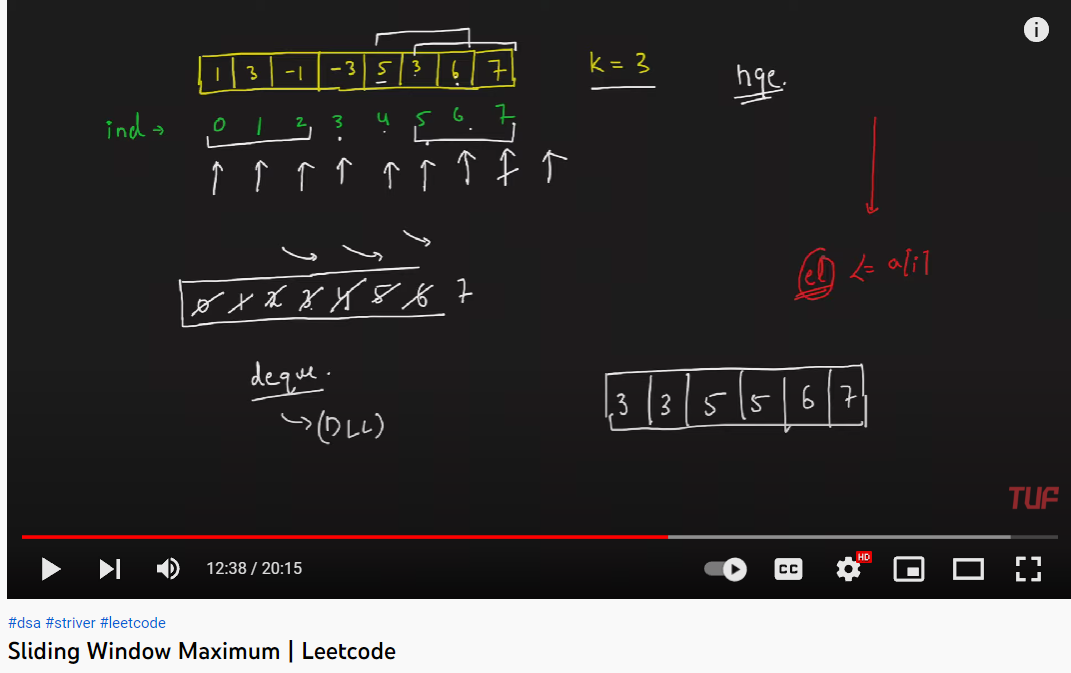 1 3 -1 -3 5 3 6 7
k = 3
nge.
ind → 0 1 2 3 4 5 6 7
el <= a[i]
0 1 2 3 4 5 6 7
deque.
→ (DLL)
3 3 5 5 6 7
TUF
HD
12:38 / 20:15
CC
#dsa #striver #leetcode
Sliding Window Maximum | Leetcode